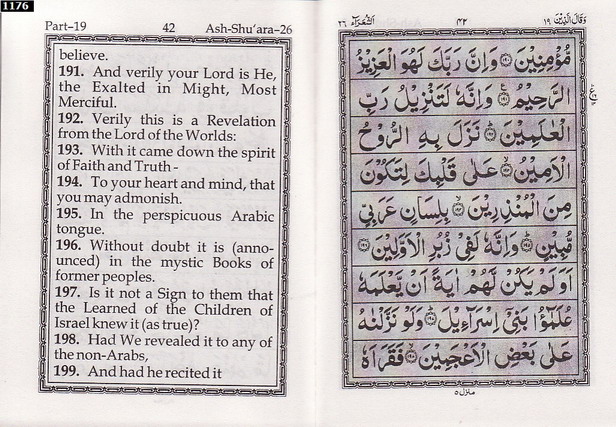 1176
Part-19 42 Ash-Shu'ara-26
believe.
191. And verily your Lord is He,
the Exalted in Might, Most
Merciful.
192. Verily this is a Revelation
from the Lord of the Worlds:
193. With it came down the spirit
of Faith and Truth -
194. To your heart and mind, that
you may admonish.
195. In the perspicuous Arabic
tongue.
196. Without doubt it is (anno-
unced) in the mystic Books of
former peoples.
197. Is it not a Sign to them that
the Learned of the Children of
Israel knew it (as true)?
198. Had We revealed it to any of
the non-Arabs,
199. And had he recited it
وَقَالَ الَّذِيْنَ ١٩ ٤٢ اَلشُّعَرَآء ٢٦
مُّؤْمِنِيْنَ ﴿١٩٠﴾ وَاِنَّ رَبَّكَ لَهُوَ الْعَزِيْزُ
الرَّحِيْمُ ﴿١٩١﴾ وَاِنَّهٗ لَتَنْزِيْلُ رَبِّ
الْعٰلَمِيْنَ ﴿١٩٢﴾ نَزَلَ بِهِ الرُّوْحُ
الْاَمِيْنُ ﴿١٩٣﴾ عَلٰى قَلْبِكَ لِتَكُوْنَ
مِنَ الْمُنْذِرِيْنَ ﴿١٩٤﴾ بِلِسَانٍ عَرَبِيٍّ
مُّبِيْنٍ ﴿١٩٥﴾ وَاِنَّهٗ لَفِيْ زُبُرِ الْاَوَّلِيْنَ ﴿١٩٦﴾
اَوَلَمْ يَكُنْ لَّهُمْ اٰيَةً اَنْ يَّعْلَمَهٗ
عُلَمٰٓؤُا بَنِيْٓ اِسْرَآءِيْلَ ﴿١٩٧﴾ وَلَوْ نَزَّلْنٰهُ
عَلٰى بَعْضِ الْاَعْجَمِيْنَ ﴿١٩٨﴾ فَقَرَاَهٗ
منزل ٥